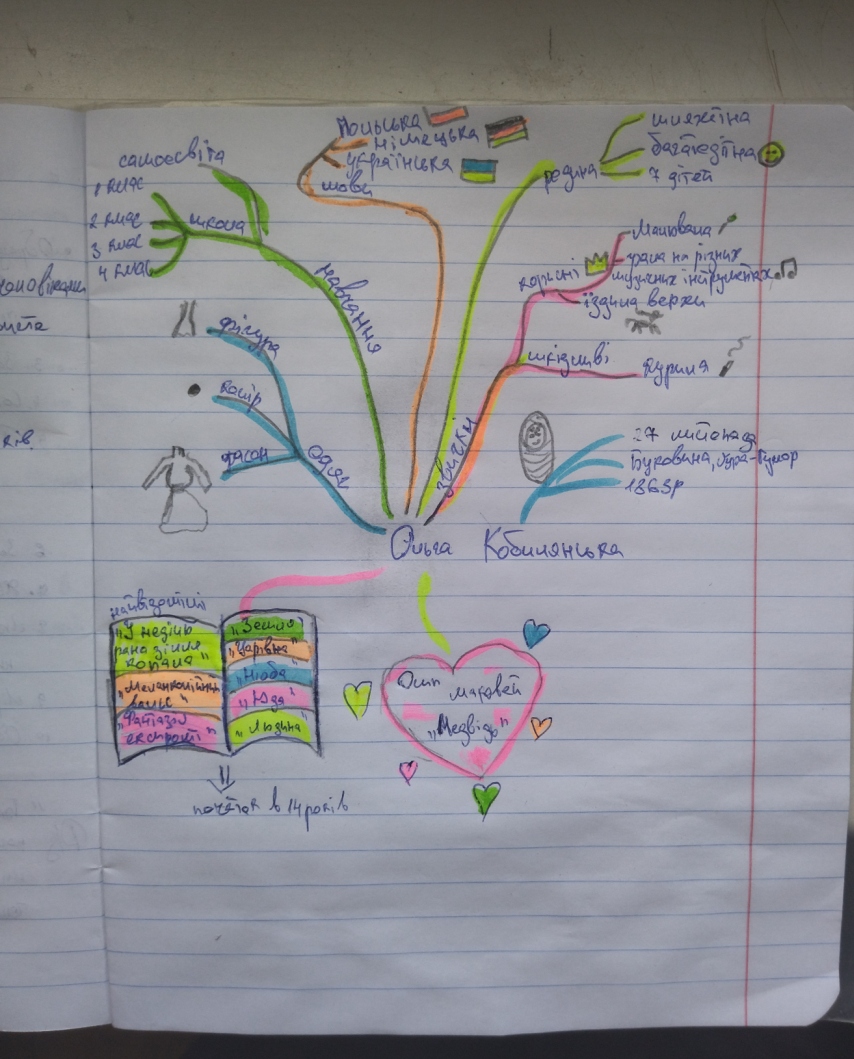 самоосвіта
1 клас
2 клас
3 клас
4 клас
школа
навчання
Польська
німецька
українська
мови
родина
шляхтіна
багатодітна
7 дітей
корисні
Малювала
грала на різних
музичних інструментах
їздила верхи
шкідливі
курила
звички
фігура
колір
фасон
одяг
27 листопада
Буковина, Гура-Гумор
1863р
Ольга Кобилянська
найвідоміші
"У неділю
рано зілля
копала"
"Меланхолійний
вальс"
"Земля"
"Царівна"
"Ніоба"
"Юда"
"Людина"
початок в 14 років
Осип Маковей
"Медвідь"